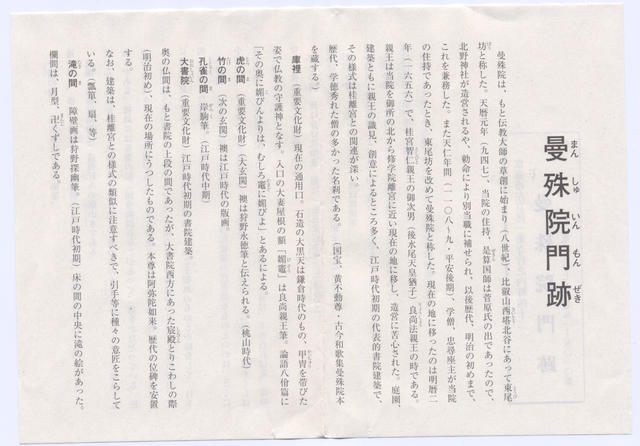 曼殊院門跡
まんしゅいんもんぜき
曼殊院は、もと伝教大師の草創に始まり（八世紀）、比叡山西塔北谷にあって東尾
坊と称した。天暦元年（九四七）、当院の住持、是算国師は菅原氏の出であったので、
北野神社が造営されるや、勅命により別当職に補せられ、以後歴代、明治の初めまで、
これを兼務した。また天仁年間（一一〇八〜九・平安後期）、学僧、忠尋座主が当院
の住持であったとき、東尾坊を改めて曼殊院と称した。現在の地に移ったのは明暦二
年（一六五六）で、桂宮智仁親王の御次男（後水尾天皇猶子）良尚法親王の時である。
親王は当院を御所の北から修学院離宮に近い現在の地に移し、造営に苦心された。庭園、
建築ともに親王の識見、創意によるところ多く、江戸時代初期の代表的書院建築で、
その様式は桂離宮との関連が深い。
歴代、学徳秀れた僧の多かった名刹である。（国宝、黄不動尊・古今和歌集曼殊院本
を蔵する）
庫裡（重要文化財）現在の通用口。石造の大黒天は鎌倉時代のもの、甲冑を帯びた
姿で仏教の守護神となす。入口の大妻屋根の額「媚竈」は良尚親王筆。論語八佾篇に
「その奥に媚びんよりは、むしろ竈に媚びよ」とあるによる。
虎の間（重要文化財）（大玄関）襖は狩野永徳筆と伝えられる。（桃山時代）
竹の間（次の玄関）襖は江戸時代の版画。
孔雀の間 岸駒筆。（江戸時代中期）
大書院（重要文化財）江戸時代初期の書院建築。
奥の仏間は、もと書院の上段の間であったが、大書院西方にあった宸殿とりこわしの際
（明治初め）、現在の場所にうつしたものである。本尊は阿弥陀如来。歴代の位碑を安置
する。
なお、建築は、桂離宮との様式の類似に注意すべきで、引手等に種々の意匠をこらして
いる。（瓢箪、扇、等）
滝の間 障壁画は狩野探幽筆。（江戸時代初期）床の間の中央に滝の絵があった。
欄間は、月型、卍くずしである。